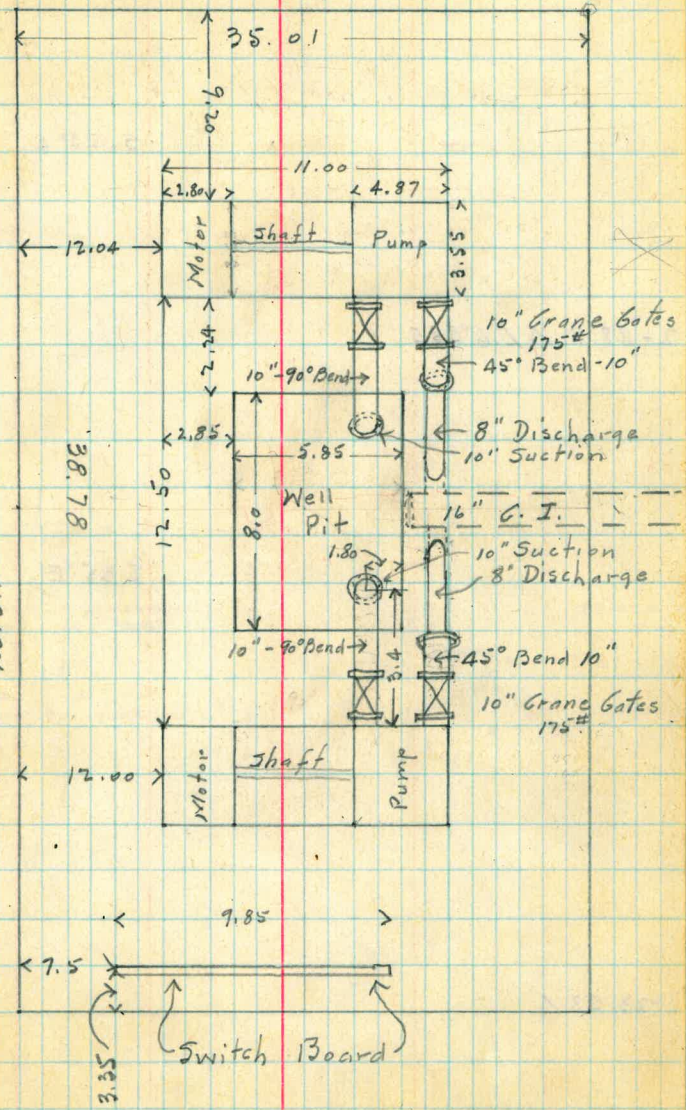 35.01
9.02
11.00
2.80
4.87
Motor
Shaft
Pump
3.55
12.04
2.24
10" Crane Gates
175#
45° Bend-10"
10"-90°Bend
2.85
5.85
8" Discharge
10" Suction
38.78
12.50
8.0
Well
Pit
16" C. I.
1.80
10" Suction
8" Discharge
10"-90°Bend
3.4
45° Bend 10"
10" Crane Gates
175#
12.00
Motor
Shaft
Pump
9.85
7.5
3.35
Switch Board